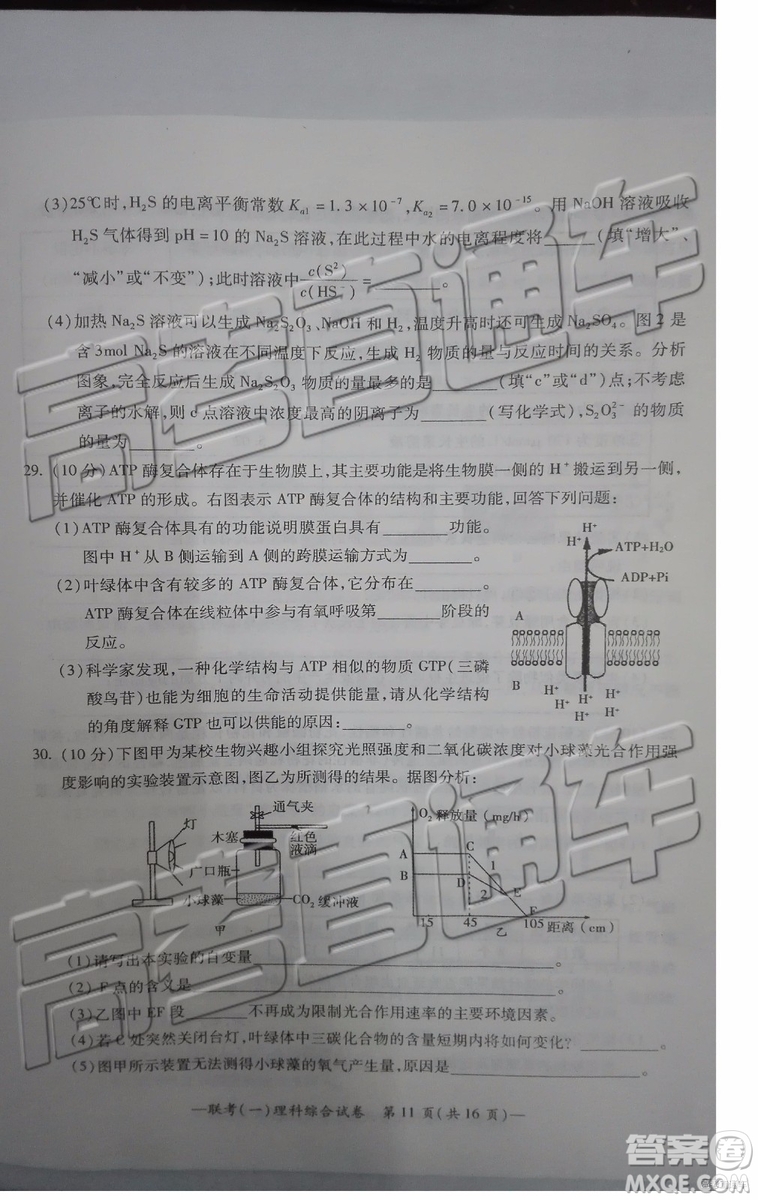 (3)25℃时,H₂S 的电离平衡常数 Kₐ₁=1.3×10⁻⁷,Kₐ₂=7.0×10⁻¹⁵。用 NaOH 溶液吸收
H₂S 气体得到 pH=10 的 Na₂S 溶液,在此过程中水的电离程度将______(填“增大”、
“减小”或“不变”);此时溶液中c(S²⁻)/c(HS⁻)=______。
(4)加热 Na₂S 溶液可以生成 Na₂S₂O₃、NaOH 和 H₂,温度升高时还可生成 Na₂SO₄。图 2 是
含 3mol Na₂S 的溶液在不同温度下反应,生成 H₂ 物质的量与反应时间的关系。分析
图象,完全反应后生成 Na₂S₂O₃ 物质的量最多的是______(填“c”或“d”)点;不考虑
离子的水解,则 c 点溶液中浓度最高的阴离子为______(写化学式),S₂O₃²⁻ 的物质
的量为______。
29. (10 分)ATP 酶复合体存在于生物膜上,其主要功能是将生物膜一侧的 H⁺ 搬运到另一侧,
并催化 ATP 的形成。右图表示 ATP 酶复合体的结构和主要功能,回答下列问题:
(1)ATP 酶复合体具有的功能说明膜蛋白具有______功能。
图中 H⁺从 B 侧运输到 A 侧的跨膜运输方式为______。
(2)叶绿体中含有较多的 ATP 酶复合体,它分布在______。
ATP 酶复合体在线粒体中参与有氧呼吸第______阶段的
反应。
(3)科学家发现,一种化学结构与 ATP 相似的物质 GTP(三磷
酸鸟苷)也能为细胞的生命活动提供能量,请从化学结构
的角度解释 GTP 也可以供能的原因:______。
H⁺
H⁺
ATP+H₂O
ADP+Pi
A
B
H⁺
H⁺ H⁺
H⁺ H⁺
30. (10 分)下图甲为某校生物兴趣小组探究光照强度和二氧化碳浓度对小球藻光合作用强
度影响的实验装置示意图,图乙为所测得的结果。据图分析:
灯
通气夹
木塞
红色
液滴
广口瓶
小球藻
CO₂ 缓冲液
甲
O₂ 释放量 (mg/h)
A
B
C
D
1
2
E
F
15 45 105 距离 (cm)
乙
(1)请写出本实验的自变量______。
(2) F 点的含义是______。
(3)乙图中 EF 段______不再成为限制光合作用速率的主要环境因素。
(4)若 C 处突然关闭台灯,叶绿体中三碳化合物的含量短期内将如何变化?______
(5)图甲所示装置无法测得小球藻的氧气产生量,原因是______。
—联考(一)理科综合试卷 第 11 页(共 16 页)—
高考直通车
高考直通车
答案圈
MXQE.COM